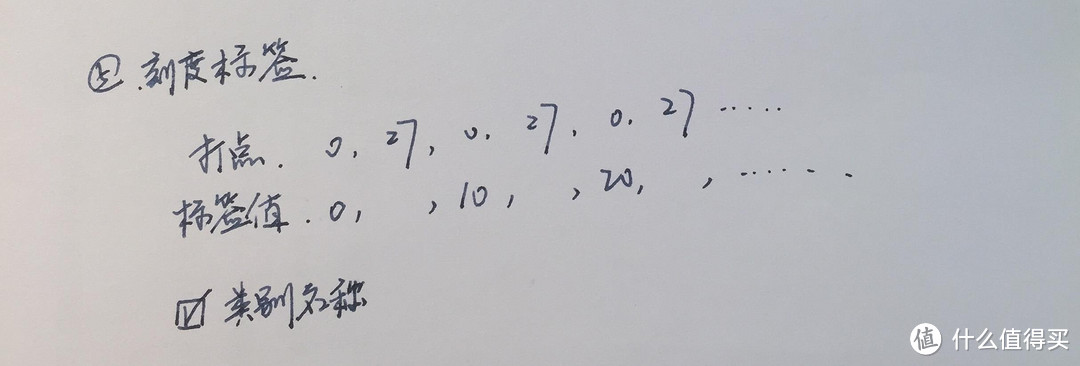 ⑤ 刻度标签.
打点. 0, 27, 0. 27, 0. 27 ······
标签值. 0, , 10, , 20, , ······
☑ 类别名称
值 什么值得买